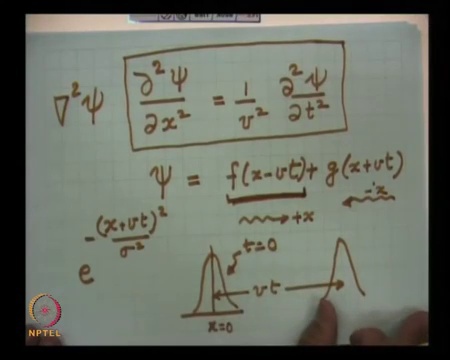 ∇²ψ ∂²ψ/∂x² = 1/v² ∂²ψ/∂t²
ψ = f(x-vt) + g(x+vt)
→ +x ← -x
e^{-(x+vt)²/σ²}
t=0
vt
x=0
NPTEL